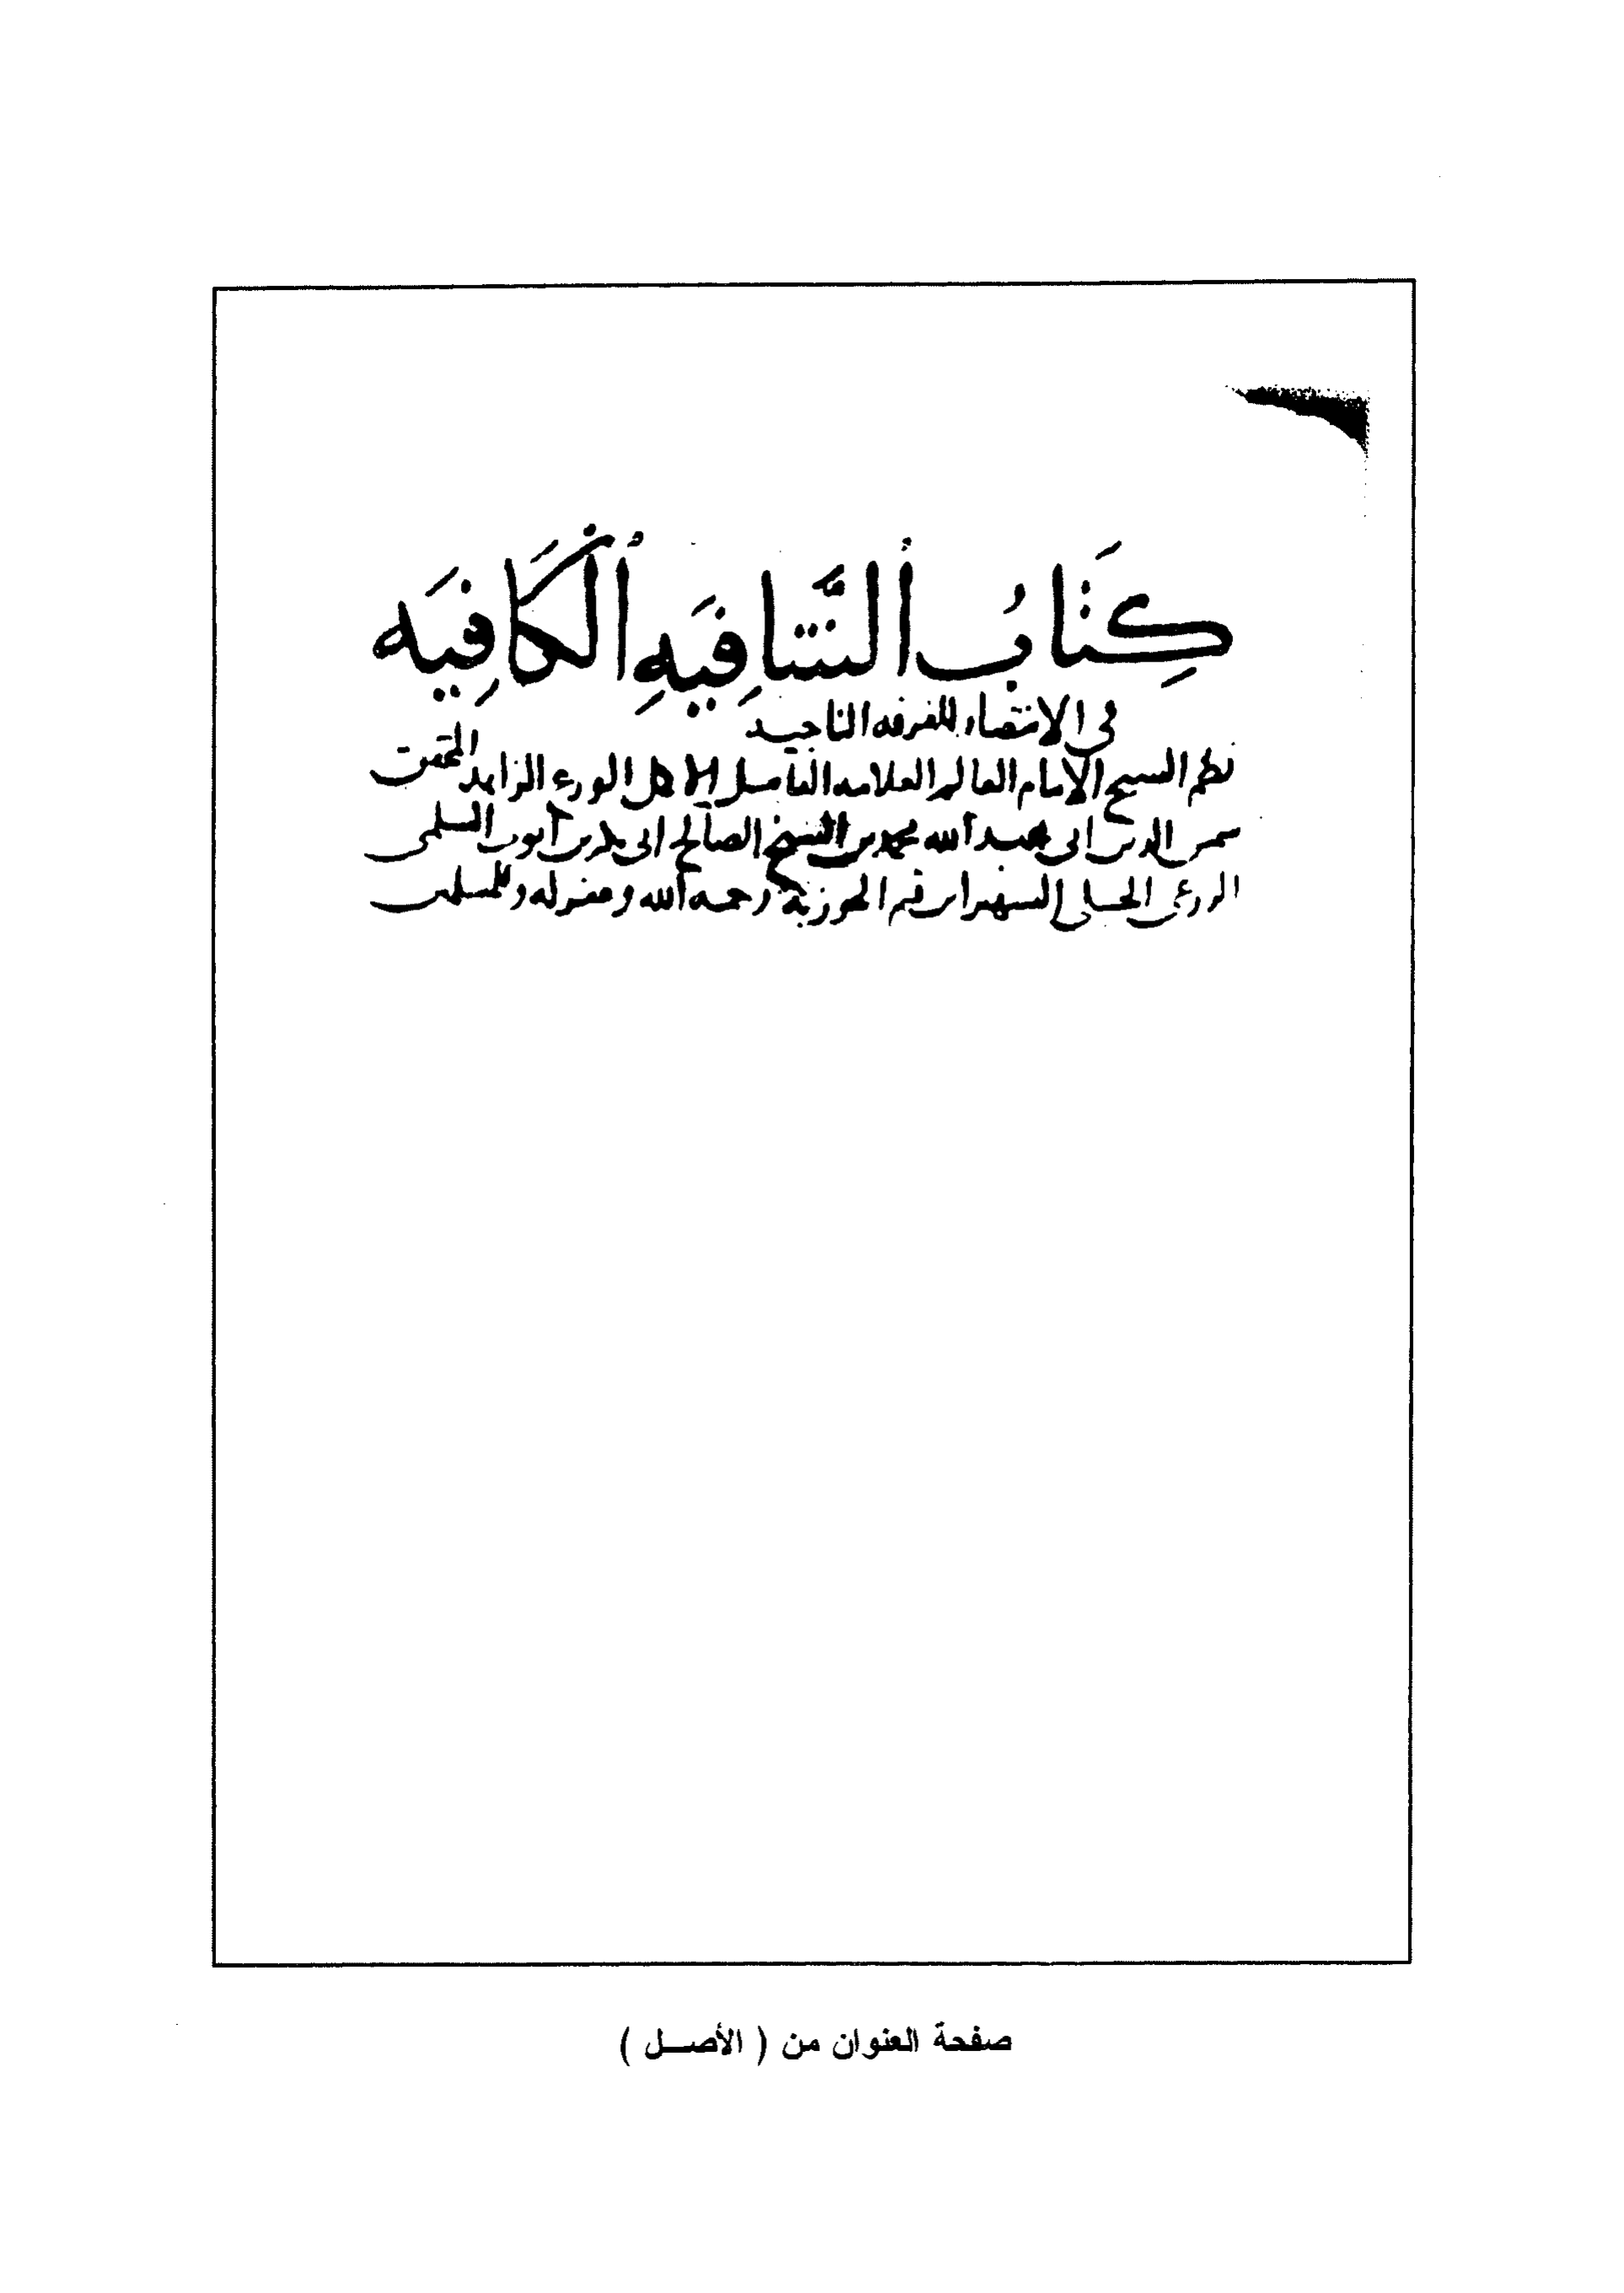 كِتَابُ الشَّافِيَهِ الْكَافِيَه
في الانتصار للفرقه الناجيه
نظم الشيخ الامام العالم العلامه الفاضل الاكمل الورع الزاهد المحقق
شمس الدين ابى عبد الله محمد بن الشيخ الصالح ابى بكر بن أيوب
الحنبلى الشهير ابن قيم الجوزية رحمه الله وغفر له وللمسلمين
صفحة العنوان من ( الأصـــل )